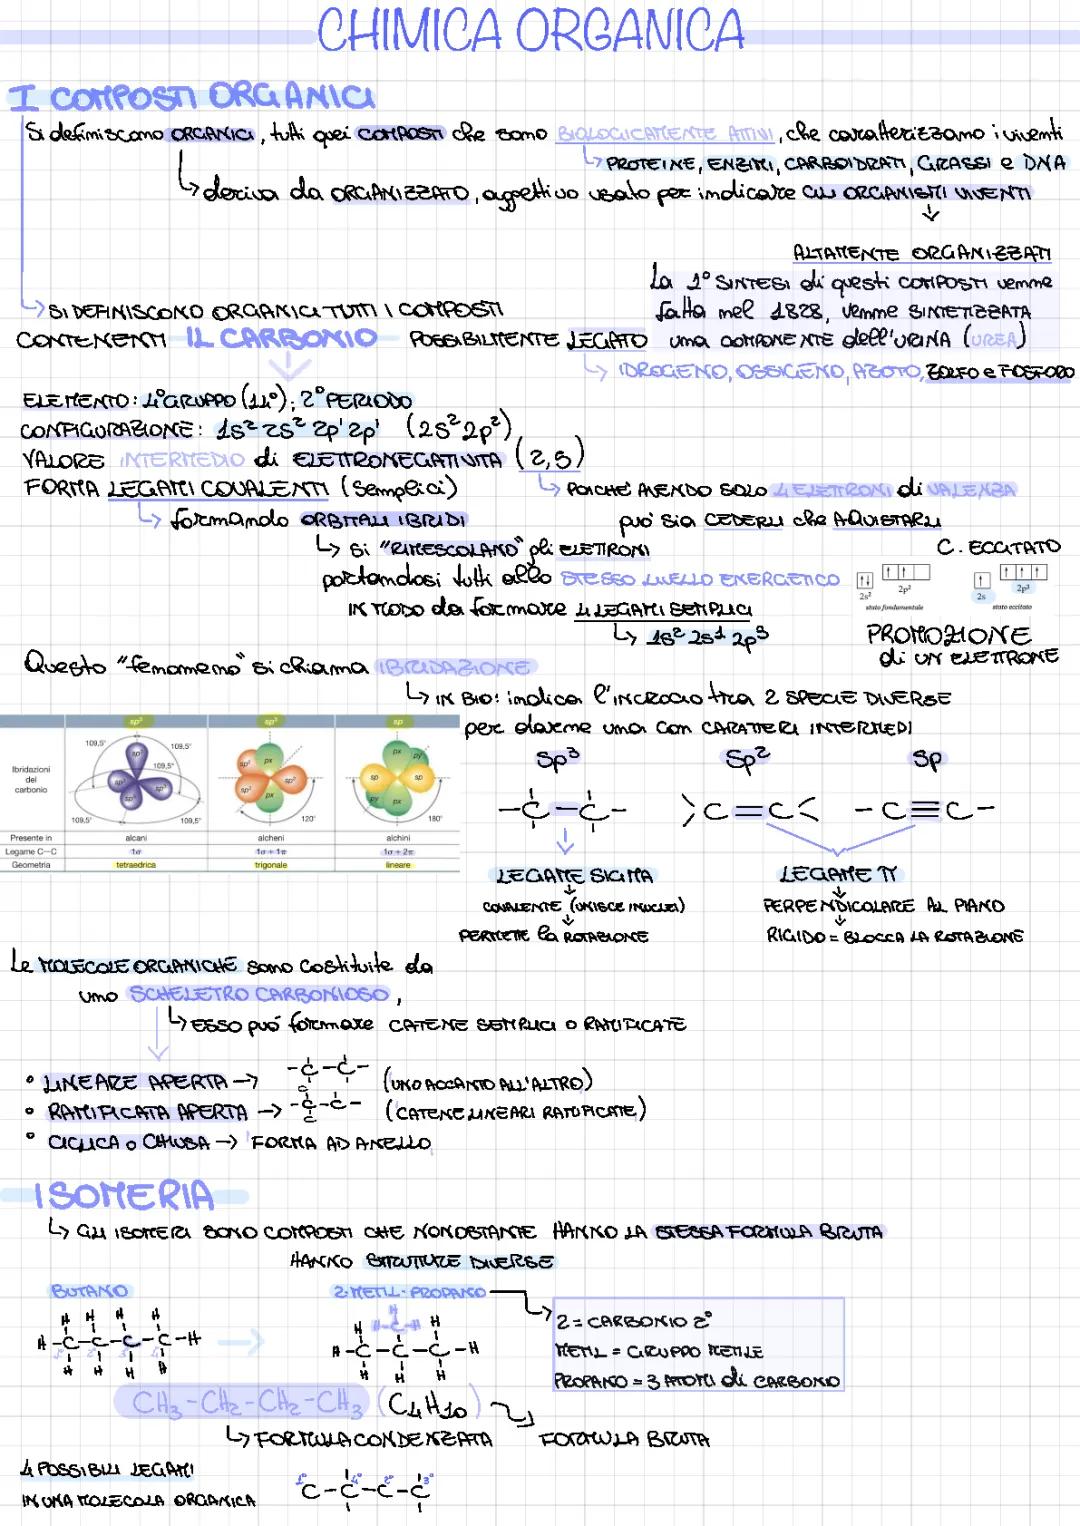 CHIMICA ORGANICA
I COMPOSTI ORGANICI
Si definiscono ORGANICI, tutti quei COMPOSTI che sono BIOLOGICAMENTE ATTIVI, che caratterizzano i viventi
↳ PROTEINE, ENZIMI, CARBOIDRATI, GRASSI e DNA
↳ deriva da ORGANIZZATO, aggettivo usato per indicare GLI ORGANISMI VIVENTI
ALTAMENTE ORGANIZZATI
La 1° SINTESI di questi COMPOSTI venne
↳ SI DEFINISCONO ORGANICI TUTTI I COMPOSTI
fatta nel 1828, venne SINTETIZZATA
CONTENENTI IL CARBONIO POSSIBILMENTE LEGATO
una COMPONENTE dell'URINA (UREA)
↳ IDROGENO, OSSIGENO, AZOTO, ZOLFO e FOSFORO
ELEMENTO: 4° GRUPPO (14°); 2° PERIODO
CONFIGURAZIONE: 1s² 2s² 2p¹ 2p¹ (2s² 2p²)
VALORE INTERMEDIO di ELETTRONEGATIVITA (2,5)
FORMA LEGAMI COVALENTI (semplici)
↳ POICHE' AVENDO SOLO 4 ELETTRONI di VALENZA
↳ formando ORBITALI IBRIDI
puo' sia CEDERLI che AQUISTARLI
↳ si "RIMESCOLANO" gli ELETTRONI
C. ECCITATO
portandosi tutti allo STESSO LIVELLO ENERGETICO
2s² 2p²
2s 2p³
stato fondamentale
stato eccitato
IN MODO da formare 4 LEGAMI SEMPLICI
↳ 1s² 2s¹ 2p³
PROMOZIONE
di UN ELETTRONE
Questo "fenomeno" si chiama IBRIDAZIONE
↳ IN BIO: indica l'incrocio tra 2 SPECIE DIVERSE
per darne una con CARATTERI INTERMEDI
sp³ sp² sp
109,5° 109,5° 109,5° 109,5° 109,5°
sp³ sp³ sp³ sp³
px sp² sp² sp² px
120°
px py sp sp py px
180°
Ibridazioni
del
carbonio
Presente in alcani alcheni alchini
Legame C—C 1σ 1σ + 1π 1σ + 2π
Geometria tetraedrica trigonale lineare
Sp³ Sp² Sp
-C-C- >C=C< -C≡C-
LEGAME SIGMA
COVALENTE (UNISCE I NUCLEI)
PERMETTE la ROTAZIONE
LEGAME π
PERPENDICOLARE AL PIANO
RIGIDO = BLOCCA LA ROTAZIONE
Le MOLECOLE ORGANICHE sono costituite da
uno SCHELETRO CARBONIOSO,
↳ ESSO può formare CATENE SEMPLICI O RAMIFICATE
• LINEARE APERTA → -C-C- (UNO ACCANTO ALL'ALTRO)
• RAMIFICATA APERTA → C -C-C- C (CATENE LINEARI RAMIFICATE)
• CICLICA o CHIUSA → FORMA AD ANELLO
ISOMERIA
↳ GLI ISOMERI SONO COMPOSTI CHE NONOSTANTE HANNO LA STESSA FORMULA BRUTA
HANNO STRUTTURE DIVERSE
BUTANO
H H H H
H-C-C-C-C-H
1° 2° 3° 4°
H H H H
2-METIL-PROPANO
H
H-C-H
H H
H-C-C-C-H
H H H
2 = CARBONIO 2°
METIL = GRUPPO METILE
PROPANO = 3 ATOMI di CARBONIO
CH₃-CH₂-CH₂-CH₃ (C₄H₁₀)
↳ FORMULA CONDENZATA
FORMULA BRUTA
4 POSSIBILI LEGAMI
IN UNA MOLECOLA ORGANICA
1° 4° 2° 3°
C-C-C-C